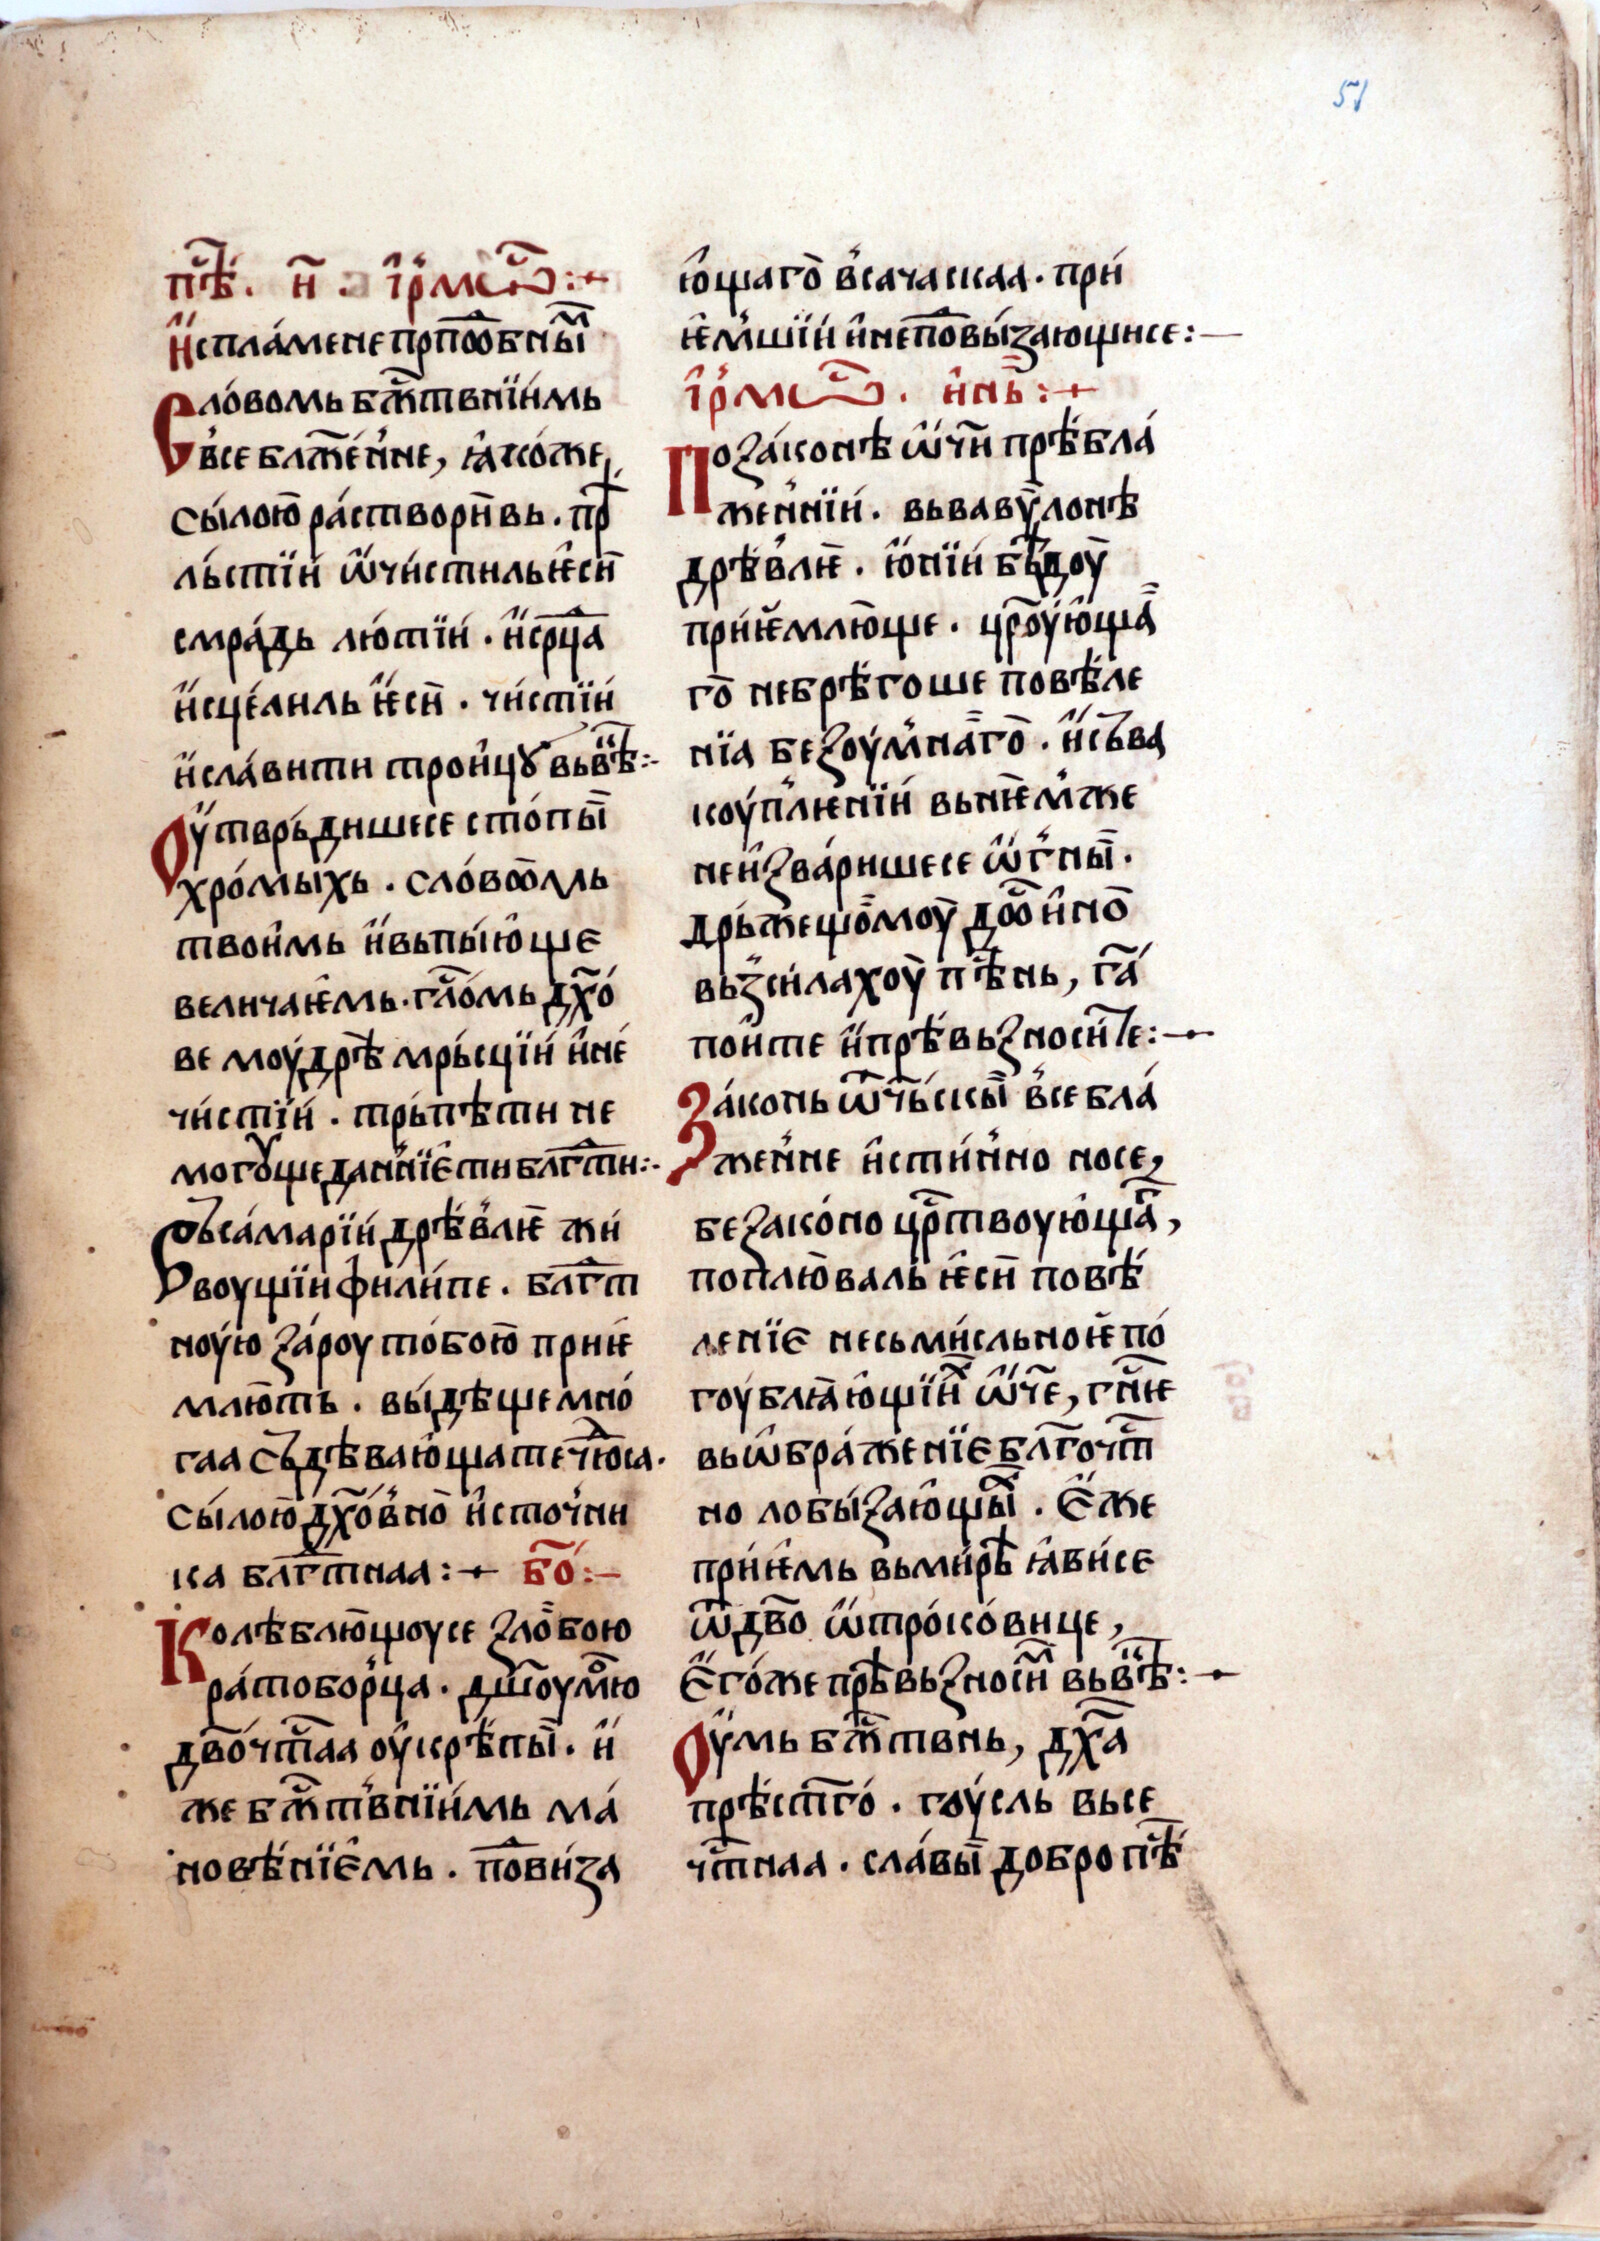 51
пѣ҃. и҃. і҆рмѡ҃:~
И҆спла́мене прпⷣобныⷨ
Сло́вомь бж҃твнїи́мь
в҆себлж҃е́н҆не, ꙗ҆ко́же
сы́лою̀ ра́створи̑вь. прⷣ
льстїи́ ѿчи́стиль ѥ҆си̑
смра́дь лю́тїи. и҆ср҃ца
и҆сце́лиль ѥ҆си̑. чи́стїи
и҆сла́вити трои҆цꙋ вьвⷦ҇ѣ:-
Оу҆тврь́дишесе сто́пы̑
хро́мыхь. сло́вомь
твои҆мь и҆вьпы́ю҆ще
величаѥ҆мь. гл҃о́мь дх҃о́
ве моу́дрѣ мрь́сцїи и҆не́
чи́стїи. трь́пѣти не
могꙋще дан҆нїѥ҆ти блгⷣти:-
Съса́марїи дрѣ́в҆лѥ жи́
воущїи фили́пе. блгⷣт
ноу́ю за́роу то́бою̀ приѥ҆
млю̑ть. вы́дѣщемно́
гаа съдѣваю҆ща те чю́ⷣса.
сы́лою̀ дх҃о́в҆но̀ и҆сточ҆ни
ка блгⷣтнаа:~ бо҃:-
Колѣблю̑щоусе зло̑бою
ра́тобор҆ца. дш҃оумⷪ҇ю
дв҃о чⷭ҇таа оу҆крѣ́пы̑. и҆
же бж҃твнїи́мь ма́
новѣ́нїѥ҆мь. пⷣови́за
ю҆щаго̀ в҆сачаскаа. при́
ѥ҆м҆шїи и҆непⷣовы́зающисе:-
і҆рмѡ҃. и҆нь:~
Поза́конѣ ѿчи̑ прѣ́бла́
жен҆нїи. вьвавѷ̀лонѣ
дрѣ́в҆лѥ. ю҆нїи бѣдоу̀
прїѥ҆млю̑ще. цр҃оую҆ща̑
го̀ небрѣ́гоше повѣ́ле
нїа безоу́м҆на̑го̀. и҆съва
коу́п҆лѥнїи вьнѥ҆м҆же
неи҆зва́ришесе ѡ҆г҆ны̑.
дрь́жещо̑моу̀ дⷭ҇ои҆но̀
вьз҆си́лахоу̀ пѣ҃нь, гⷭ҇а́
пои҆те и҆прѣ́вьзноси́те:~
За́конь ѿч҃ьскы̑ в҆себла́
жен҆не и҆сти́н҆но носе,
беза́ко́но црⷭ҇твоую҆ща̑,
поплю̑валь ѥ҆си̑ повѣ́
ленїѥ несьми́сльноѥ по́
гоублꙗю҆щїиⷯ ѿч҃е, гнⷭ҇ѥ
вьѡ҆бра́женїѥ блг҃очⷭ҇т
но лобы́заю҆щы̑ⷯ. Е҆же
прїѥ҆мь вьми́рѣ ꙗ҆ви́се
ѿдв҃о ѡ҆тро́ко́вице,
Е҆го́же прѣ́вьзносиⷨ вьвⷦ҇ѣ:~
Оу҆мь бж҃твнь, дх҃а
прѣ́ст҃го́. гоу́сль высе
чⷭ҇тнаа. сла́вы̑ добропѣ҃